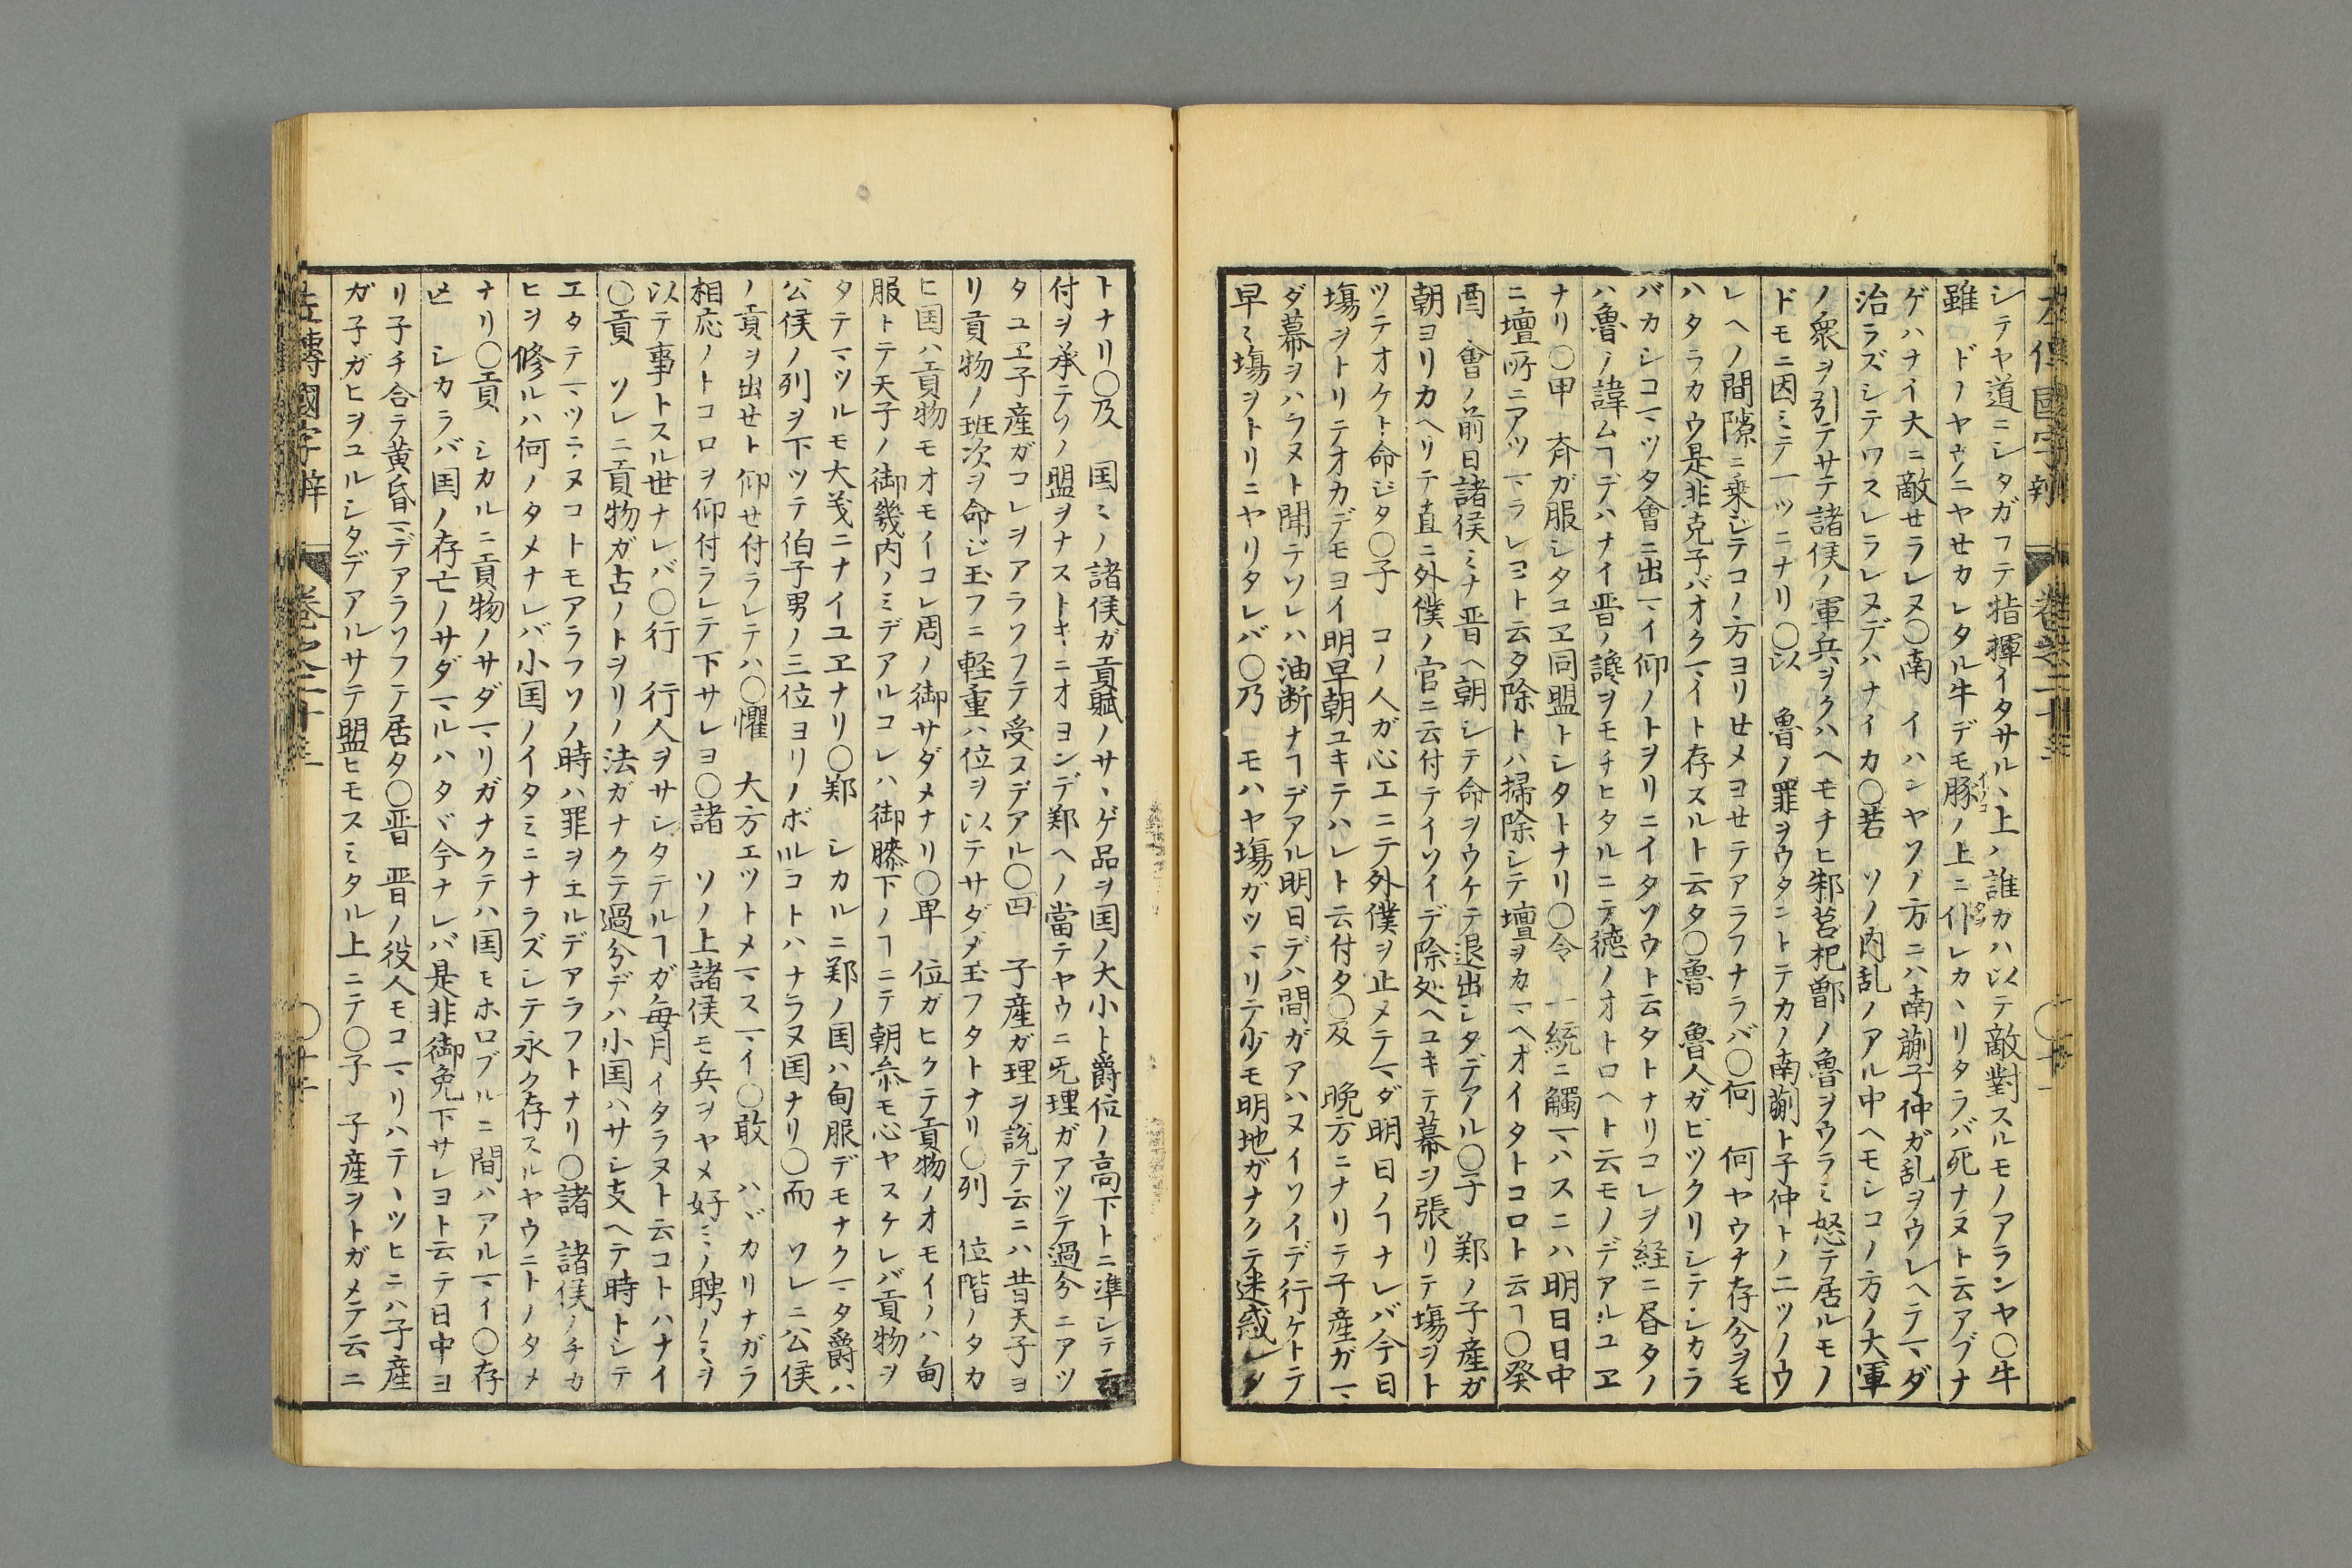 左傳國字辨 巻之二十三
シテヤ道ニシタガフテ指揮イタサル丶上ハ誰カハ以テ敵對スルモノアランヤ〇牛
雖 ドノヤウニヤセカレタル牛デモ豚ノ上ニ仆レカ丶リタラバ死ナヌト云アブナ
ゲハナイ大ニ敵セラレヌ〇南 イハンヤソノ方ニハ南蒯子仲ガ乱ヲウレヘテマダ
治ラズシテワスレラレヌデハナイカ〇若 ソノ内乱ノアル中ヘモシコノ方ノ大軍
ノ衆ヲ引テサテ諸侯ノ軍兵ヲクハヘモチヒ邾莒杞鄫ノ魯ヲウラミ怒テ居ルモノ
ドモニ因ミテ一ツニナリ〇以 魯ノ罪ヲウタントテカノ南蒯ト子仲トノ二ツノウ
レヘノ間隙ニ乗ジテコノ方ヨリせメヨせテアラフナラバ〇何 何ヤウナ存分ヲモ
ハタラカウ是非克子バオクマイト存スルト云タ〇魯 魯人ガビツクリシテシカラ
バカシコマツタ會ニ出マイ仰ノトヲリニイタソウト云タトナリコレヲ経ニ昏タノ
ハ魯ノ諱ムヿデハナイ晋ノ讒ヲモチヒタルニテ徳ノオトロヘト云モノデアルユヱ
ナリ〇甲 斉ガ服シタユヱ同盟トシタトナリ〇令 一統ニ觸マハスニハ明日日中
ニ壇所ニアツマラレヨト云タ除トハ掃除シテ壇ヲカマヘオイタトコロト云ヿ〇癸
酉 會ノ前日諸侯ミナ晋ヘ朝シテ命ヲウケテ退出シタデアル〇子 郑ノ子産ガ
朝ヨリカヘリテ直ニ外僕ノ官ニ云付テイソイデ除処ヘユキテ幕ヲ張リテ塲ヲト
ツテオケト命ジタ〇子 コノ人ガ心エニテ外僕ヲ止メテマダ明日ノヿナレバ今日
塲ヲトリテオカデモヨイ明早朝ユキテハレト云付タ〇及 晩方ニナリテ子産ガマ
ダ幕ヲハラヌト聞テソレハ油断ナヿデアル明日デハ間ガアハヌイソイデ行ケトテ
早ミ塲ヲトリニヤリタレバ〇乃 モハヤ塲ガツマリテ少モ明地ガナクテ迷惑シタ
トナリ〇及 国ミノ諸侯ガ貢賦ノサ丶ゲ品ヲ国ノ大小ト爵位ノ高下トニ準シテ云
付ヲ承テソノ盟ヲナストキニオヨンデ郑ヘノ當テヤウニ旡理ガアツテ過分ニアツ
タユヱ子産ガコレヲアラソフテ受ヌデアル〇曰 子産ガ理ヲ説テ云ニハ昔天子ヨ
リ貢物ノ班次ヲ命ジ玉フニ軽重ハ位ヲ以テサダメ玉フタトナリ〇列 位階ノタカ
ヒ国ハ貢物モオモイコレ周ノ御サダメナリ〇卑 位ガヒクテ貢物ノオモイノハ甸
服トテ天子ノ御畿内ノミデアルコレハ御膝下ノヿニテ朝糸モ心ヤスケレバ貢物ヲ
タテマツルモ大義ニナイユヱナリ〇郑 シカルニ郑ノ国ハ甸服デモナクマタ爵ハ
公侯ノ列ヲ下ツテ伯子男ノ三位ヨリノボルコトハナラヌ国ナリ〇而 ソレニ公侯
ノ貢ヲ出せト仰せ付ラレテハ〇懼 大方エツトメマスマイ〇敢 ハヾカリナガラ
相応ノトコロヲ仰付ラレテ下サレヨ〇諸 ソノ上諸侯モ兵ヲヤメ好ミノ聘ノミヲ
以テ事トスル世ナレバ〇行 行人ヲサシタテルヿガ毎月イタラヌト云コトハナイ
〇貢 ソレニ貢物ガ古ノトヲリノ法ガナクテ過分デハ小国ハサシ支ヘテ時トシテ
エタテマツラヌコトモアラフソノ時ハ罪ヲエルデアラフトナリ〇諸 諸侯ノチカ
ヒヲ修ルハ何ノタメナレバ小国ノイタミニナラズシテ永ク存スルヤウニトノタメ
ナリ〇貢 シカルニ貢物ノサダマリガナクテハ国モホロブルニ間ハアルマイ〇存
亡 シカラバ国ノ存亡ノサダマルハタヾ今ナレバ是非御免下サレヨト云テ日中ヨ
リ子チ合テ黄昏マデアラソフテ居タ〇晋 晋ノ役人モコマリハテ丶ツヒニハ子産
ガ子ガヒヲユルシタデアルサテ盟ヒモスミタル上ニテ〇子 子産ヲトガメテ云ニ
左傳國字辨 巻之二十三